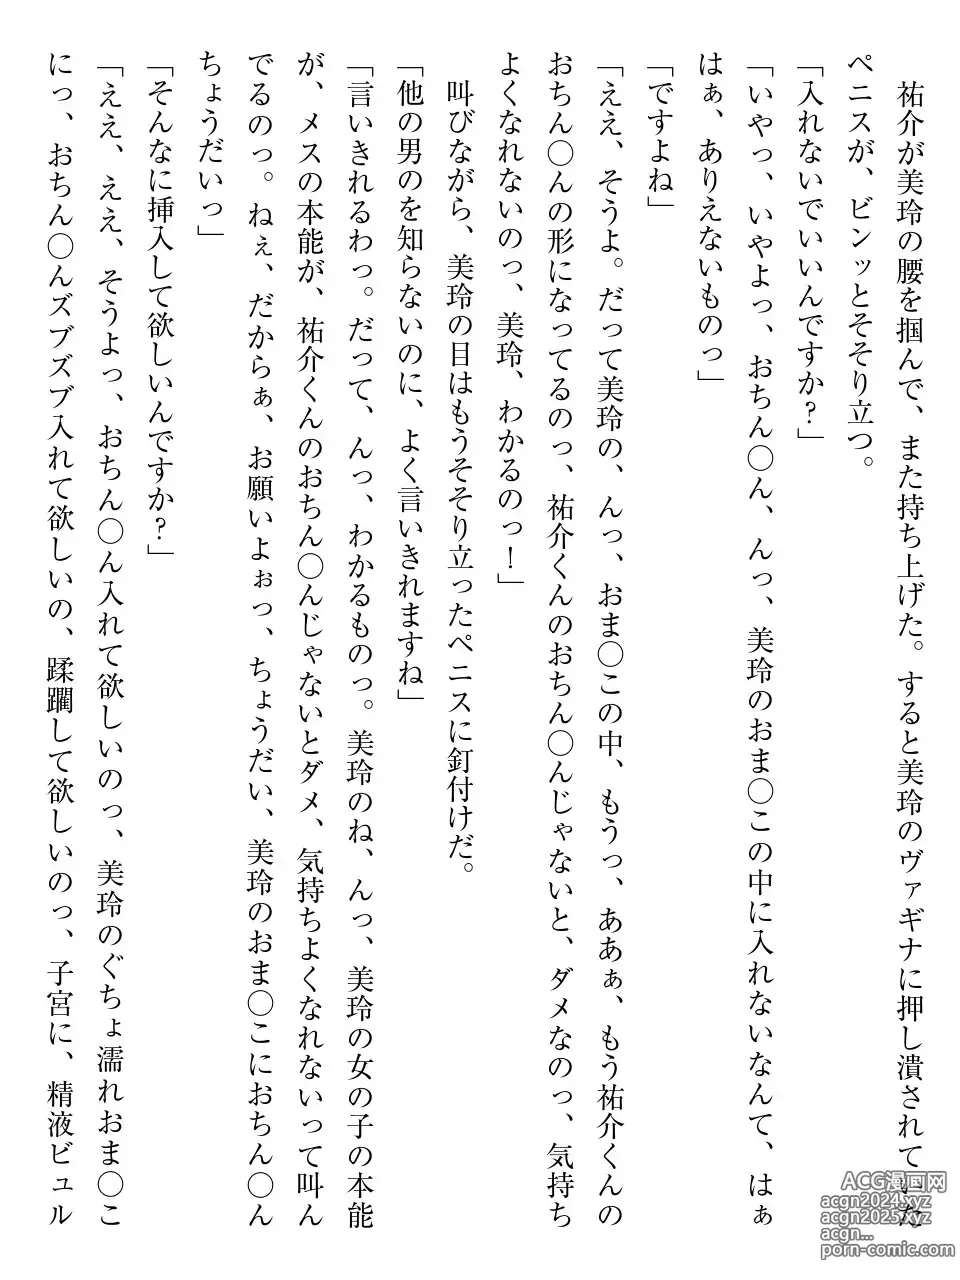 祐介が美玲の腰を掴んで、また持ち上げた。すると美玲のヴァギナに押し潰されていた
ペニスが、ビンッとそそり立つ。
「入れないでいいんですか？」
「いやっ、いやよっ、おちん〇ん、んっ、美玲のおま〇この中に入れないなんて、はぁ
はぁ、ありえないものっ」
「ですよね」
「ええ、そうよ。だって美玲の、んっ、おま〇この中、もうっ、ああぁ、もう祐介くんの
おちん〇んの形になってるのっ、祐介くんのおちん〇んじゃないと、ダメなのっ、気持ち
よくなれないのっ、美玲、わかるのっ！」
叫びながら、美玲の目はもうそそり立ったペニスに釘付けだ。
「他の男のを知らないのに、よく言いきれますね」
「言いきれるわっ。だって、んっ、わかるものっ。美玲のね、んっ、美玲の女の子の本能
が、メスの本能が、祐介くんのおちん〇んじゃないとダメ、気持ちよくなれないって叫ん
でるのっ。ねぇ、だからぁ、お願いよぉっ、ちょうだい、美玲のおま〇こにおちん〇ん
ちょうだいっ」
「そんなに挿入して欲しいんですか？」
「ええ、ええ、そうよっ、おちん〇ん入れて欲しいのっ、美玲のぐちょ濡れおま〇こ
にっ、おちん〇んズブズブ入れて欲しいの、蹂躙して欲しいのっ、子宮に、精液ビュル
ACG漫画网
acgn2024.xyz
acgn2025.xyz
acgn...
porn-comic.com